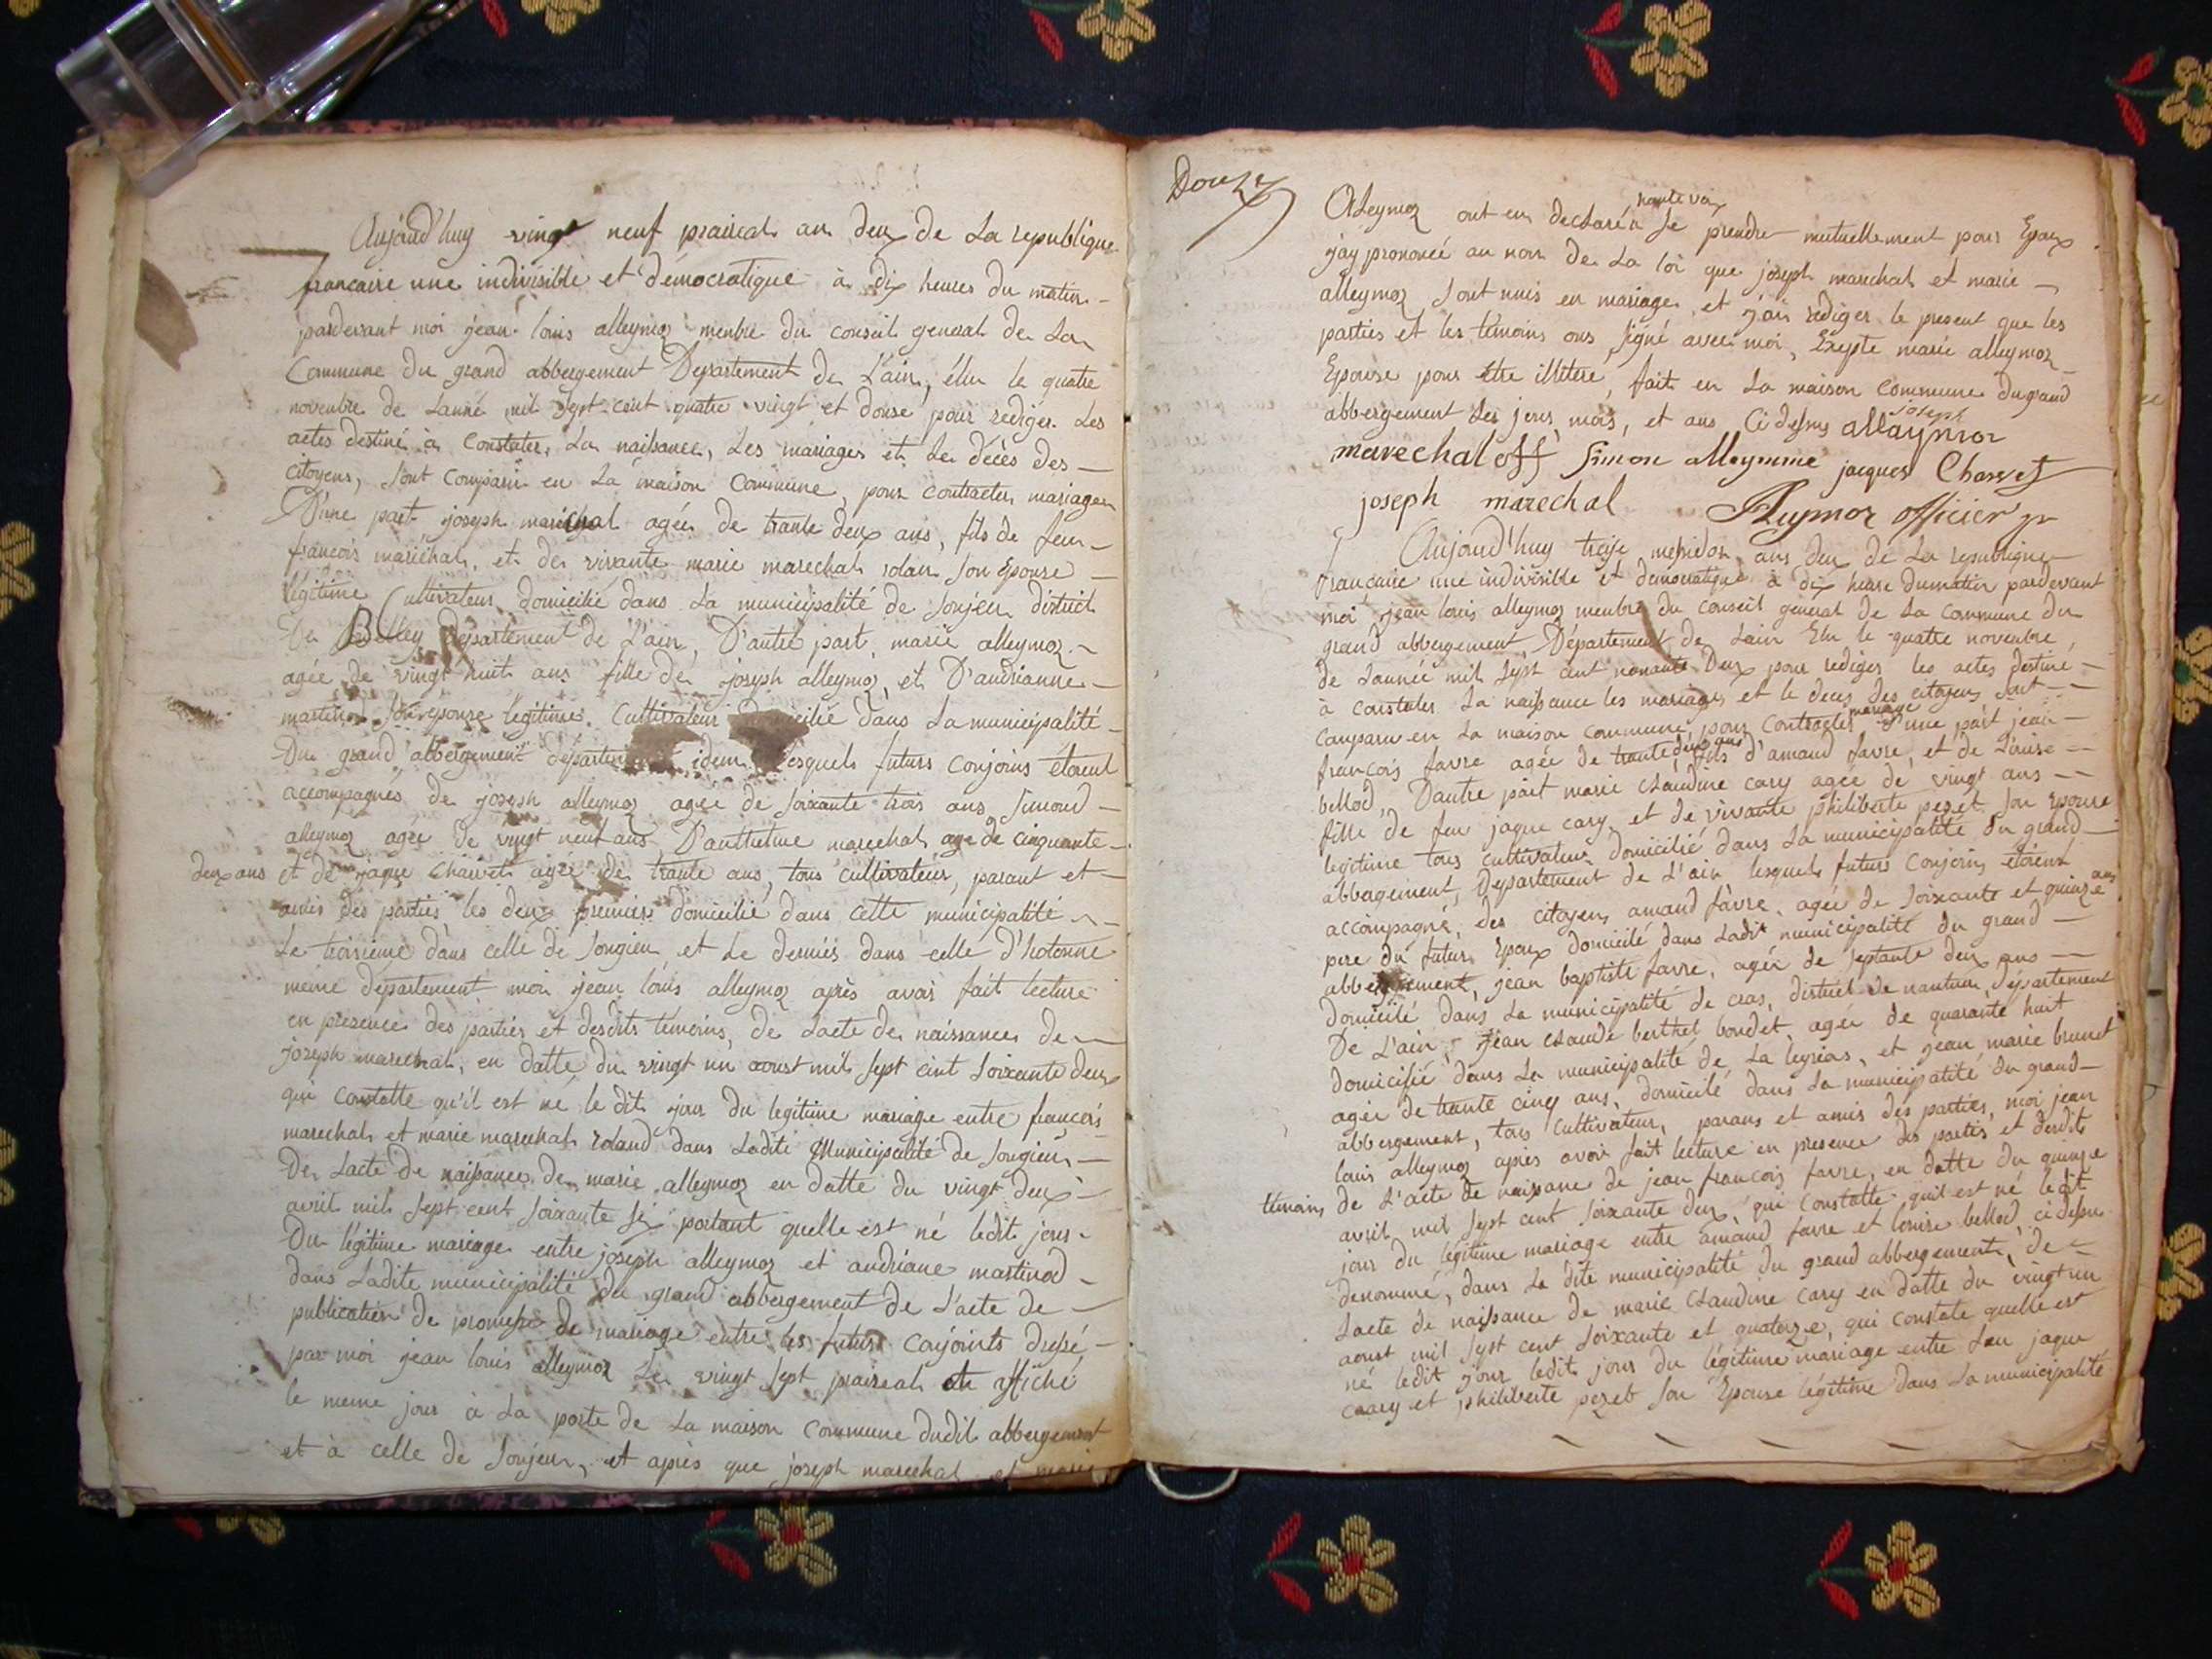 Aujourd'huy vingt neuf prairial an deux de La republique
francaise une indivisible et démocratique à dix heures du matin
pardevant moi jean louis alleymoz menbre du conseil general de La
Commune du grand abbergement Departement de L'ain, élu le quatre
novenbre de Lanné mil sept cent quatre vingt et douse pour rediger Les
actes destiné à Constater, La naissance, Les mariages et Le décès des
citoyens, sont comparu en La maison Commune, pour contracter mariage
D'une part joseph maréchal agée de trante deux ans, fils de feu
françois maréchal, et de vivante marie marechal rolan son Epouse
légitime Cultivateur domicilié dans La municipalité de sonjeu district
De Belley Département de L'ain, D'autre part, marie alleymoz
agée de vingt huit ans fille de joseph alleymoz, et D'andrianne
martinod son épouse legitime. Cultivateur domicilié dans La municipalité
Du grand abbergement departement idem Lesquels futurs conjoins étoient
accompagnés de joseph alleymoz agée de soixante trois ans Simond
alleymoz agée de vingt neuf ans D'anthelme marechal age de cinquante
deux ans et de jaque Charvet agée de trante ans, tous cultivateur, parant et
amis des parties les deux premiers domicilié dans cette municipalité
Le troisieme dans celle de songieu et Le dernier dans celle D'hotonne
même département moi jean louis alleymoz après avoir fait lecture
en presence des parties et desdits témoins, de Lacte de naissance de
joseph marechal, en datte du vingt un aoust mil sept cent soixante deux
qui constatte qu'il est né le dit jour du legitime mariage entre françois
marechal et marie marechal roland dans Ladite Municipalité de songieu
De Lacte de naissance de marie alleymoz en datte du vingt deux
avril mil sept cent soixante six portant quelle est né ledit jour
Du légitime mariage entre joseph alleymoz et andriane martinod
dans Ladite municipalité du grand abbergement de L'acte de
publication de promesse de mariage entre les futurs conjoints dressé
par moi jean louis alleymoz Le vingt sept prairial et affiché
le meme jour à La porte de La maison Commune dudit abbergement
et à celle de sonjeu, et après que joseph marechal et marie
Douze
Alleymoz ont eu declaré à haute voix se prendre mutuellement pour Epoux
j'ay prononcé au nom de La loi que joseph marechal et marie
alleymoz sont unis en mariage et j'ai rédiger le present que les
parties et les témoins ons signé avec moi, Exepté marie alleymoz
Epouse pour être illitere, fait en La maison Commune du grand
abbergement Les jours, mois, et ans Ci dessus joseph allaymoz
marechal off Simon alleymme jacques Charvet
joseph marechal Alleymoz officier
Aujourd'huy treize messidor ans deux de La republique
Française une indivisible et democratique à dix heure du matin pardevant
moi jean louis alleymoz menbre du conseil géneral de La commune du
grand abbergement, Département de Lain Elu le quatre novenbre
de Lannée mil sept cent nonante Deux pour rediger les actes destiné
à constater La naissance les mariages et le deces des citoyens sont
comparu en La maison commune, pour contracter mariage D'une part jean
françois favre agée de trante deux ans fils d'amand favre, et de Louise
bellod, D'autre part marie Claudine cary agée de vingt ans
fille de feu jaque cary et de vivante philiberte pezet son epouse
legitime tous cultivateur domicilié dans La municipalité du grand
abbagement, Departement de L'ain lesquels futurs conjoins étoient
accompagné, des citoyens amand favre, agée de soixante et quinze ans
pere du futur Epoux domicilé dans Ladit municipalité du grand
abbergement, jean baptiste favre, agée de septante deux ans
Domicilé dans La municipalité de cras, district de nantua, département
De L'ain, jean claude berthet bondet agée de quarante huit
domicilié dans La municipalité de La leyrias, et jean marie brunet
agée de trante cinq ans, domicilé dans La municipalité du grand
abbergement, tous cultivateur, parans et amis des parties, moi jean
louis alleymoz apres avoir fait lecture en presence des parties et desdits
témoins de L'acte de naissane de jean françois favre, en datte du quinze
avril mil sept cent soixante deux, qui Constatte quil est né ledit
jour du légitime mariage entre amand favre et louise bellod ci dessu
denommé, dans La dite municipalité du grand abbergement, de
Lacte de naissance de marie Claudine cary en datte du vingt un
aoust mil sept cent soixante et quatorze, qui constate quelle est
né ledit jour ledit jour du légitime mariage entre feu jaque
caary et philiberte pezet son Epouse légitime dans La municipalité